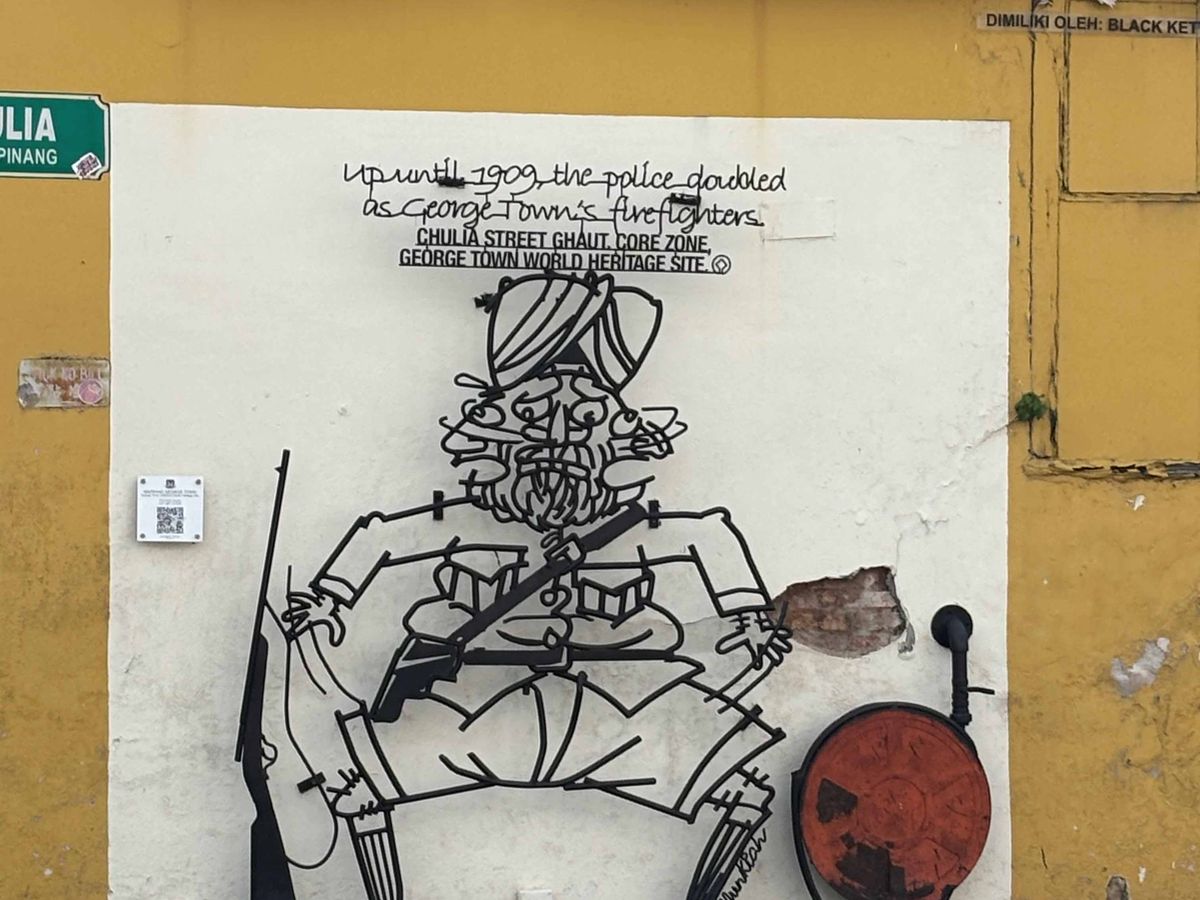 DIMILIKI OLEH: BLACK KET
ULIA
PINANG
Up until 1909, the police doubled
as George Town's firefighters.
CHULIA STREET GHAUT, CORE ZONE,
GEORGE TOWN WORLD HERITAGE SITE.